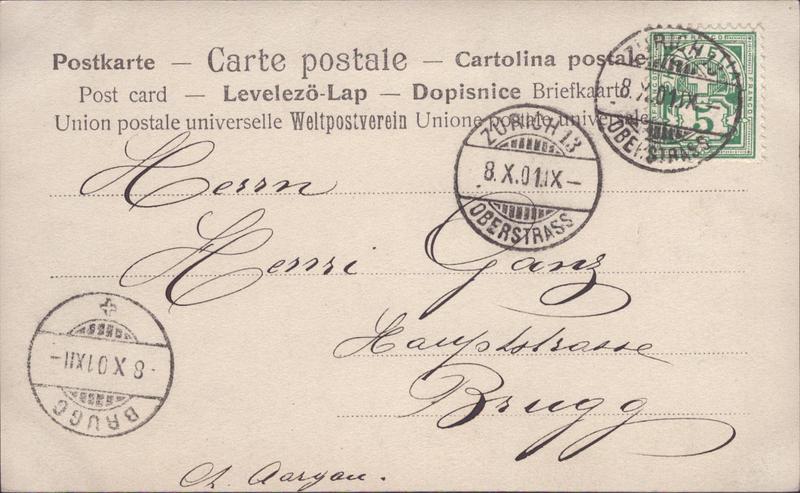 Postkarte — Carte postale — Cartolina postale
Post card — Levelező-Lap — Dopisnice Briefkaart
Union postale universelle Weltpostverein Unione postale universale
5
8.X.01.IX—
OBERSTRASS
ZÜRICH 13
8.X.01.IX—
OBERSTRASS
Herrn
Henri Ganz
Hauptstrasse
Brugg
Ct. Aargau.
BRUGG
8.X.01.XII—